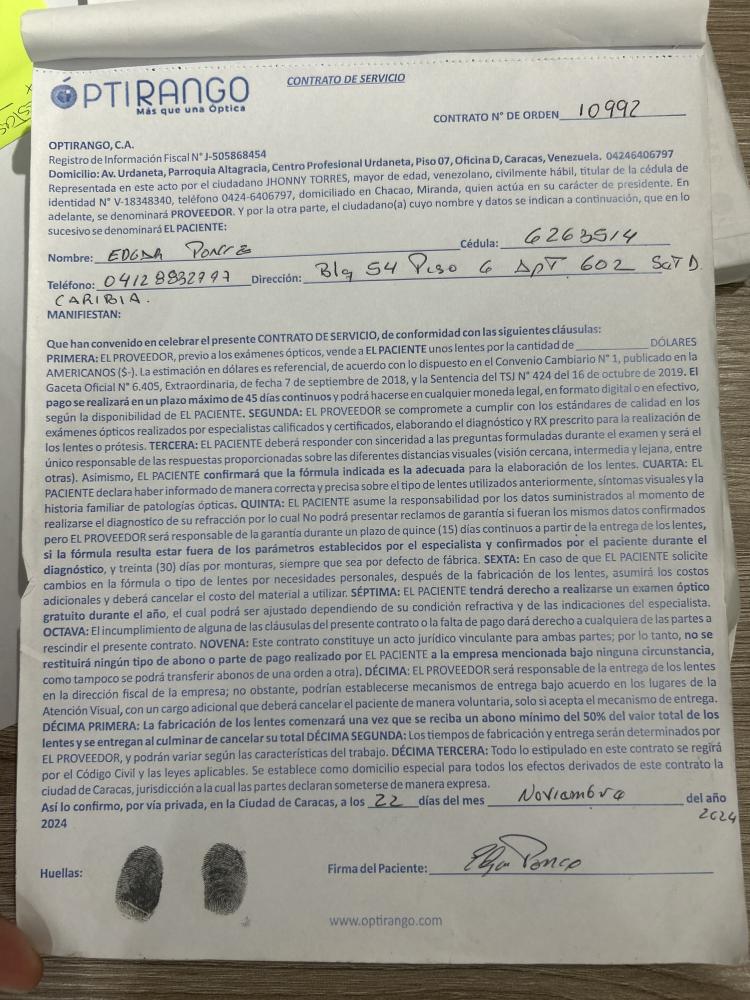 ÓPTIRANGO
Más que una Óptica
CONTRATO DE SERVICIO
CONTRATO N° DE ORDEN 10992
OPTIRANGO, C.A.
Registro de Información Fiscal N° J-505868454
Domicilio: Av. Urdaneta, Parroquia Altagracia, Centro Profesional Urdaneta, Piso 07, Oficina D, Caracas, Venezuela. 04246406797
Representada en este acto por el ciudadano JHONNY TORRES, mayor de edad, venezolano, civilmente hábil, titular de la cédula de
identidad N° V-18348340, teléfono 0424-6406797, domiciliado en Chacao, Miranda, quien actúa en su carácter de presidente. En
adelante, se denominará PROVEEDOR. Y por la otra parte, el ciudadano(a) cuyo nombre y datos se indican a continuación, que en lo
sucesivo se denominará EL PACIENTE:
Nombre: EDGAR PONCE Cédula: 6263514
Teléfono: 04128832797 Dirección: Blq 54 Piso 6 APT 602 Sct D
CARIBIA.
MANIFIESTAN:
Que han convenido en celebrar el presente CONTRATO DE SERVICIO, de conformidad con las siguientes cláusulas:
PRIMERA: EL PROVEEDOR, previo a los exámenes ópticos, vende a EL PACIENTE unos lentes por la cantidad de ____________ DÓLARES
AMERICANOS ($-). La estimación en dólares es referencial, de acuerdo con lo dispuesto en el Convenio Cambiario N° 1, publicado en la
Gaceta Oficial N° 6.405, Extraordinaria, de fecha 7 de septiembre de 2018, y la Sentencia del TSJ N° 424 del 16 de octubre de 2019. El
pago se realizará en un plazo máximo de 45 días continuos y podrá hacerse en cualquier moneda legal, en formato digital o en efectivo,
según la disponibilidad de EL PACIENTE. SEGUNDA: EL PROVEEDOR se compromete a cumplir con los estándares de calidad en los
exámenes ópticos realizados por especialistas calificados y certificados, elaborando el diagnóstico y RX prescrito para la realización de
los lentes o prótesis. TERCERA: EL PACIENTE deberá responder con sinceridad a las preguntas formuladas durante el examen y será el
único responsable de las respuestas proporcionadas sobre las diferentes distancias visuales (visión cercana, intermedia y lejana, entre
otras). Asimismo, EL PACIENTE confirmará que la fórmula indicada es la adecuada para la elaboración de los lentes. CUARTA: EL
PACIENTE declara haber informado de manera correcta y precisa sobre el tipo de lentes utilizados anteriormente, síntomas visuales y la
historia familiar de patologías ópticas. QUINTA: EL PACIENTE asume la responsabilidad por los datos suministrados al momento de
realizarse el diagnostico de su refracción por lo cual No podrá presentar reclamos de garantía si fueran los mismos datos confirmados
pero EL PROVEEDOR será responsable de la garantía durante un plazo de quince (15) días continuos a partir de la entrega de los lentes,
si la fórmula resulta estar fuera de los parámetros establecidos por el especialista y confirmados por el paciente durante el
diagnóstico, y treinta (30) días por monturas, siempre que sea por defecto de fábrica. SEXTA: En caso de que EL PACIENTE solicite
cambios en la fórmula o tipo de lentes por necesidades personales, después de la fabricación de los lentes, asumirá los costos
adicionales y deberá cancelar el costo del material a utilizar. SÉPTIMA: EL PACIENTE tendrá derecho a realizarse un examen óptico
gratuito durante el año, el cual podrá ser ajustado dependiendo de su condición refractiva y de las indicaciones del especialista.
OCTAVA: El incumplimiento de alguna de las cláusulas del presente contrato o la falta de pago dará derecho a cualquiera de las partes a
rescindir el presente contrato. NOVENA: Este contrato constituye un acto jurídico vinculante para ambas partes; por lo tanto, no se
restituirá ningún tipo de abono o parte de pago realizado por EL PACIENTE a la empresa mencionada bajo ninguna circunstancia,
como tampoco se podrá transferir abonos de una orden a otra). DÉCIMA: EL PROVEEDOR será responsable de la entrega de los lentes
en la dirección fiscal de la empresa; no obstante, podrían establecerse mecanismos de entrega bajo acuerdo en los lugares de la
Atención Visual, con un cargo adicional que deberá cancelar el paciente de manera voluntaria, solo si acepta el mecanismo de entrega.
DÉCIMA PRIMERA: La fabricación de los lentes comenzará una vez que se reciba un abono mínimo del 50% del valor total de los
lentes y se entregan al culminar de cancelar su total DÉCIMA SEGUNDA: Los tiempos de fabricación y entrega serán determinados por
EL PROVEEDOR, y podrán variar según las características del trabajo. DÉCIMA TERCERA: Todo lo estipulado en este contrato se regirá
por el Código Civil y las leyes aplicables. Se establece como domicilio especial para todos los efectos derivados de este contrato la
ciudad de Caracas, jurisdicción a la cual las partes declaran someterse de manera expresa.
Así lo confirmo, por vía privada, en la Ciudad de Caracas, a los 22 días del mes Noviembre del año
2024 2024
Huellas: Firma del Paciente: Edgar Ponce
www.optirango.com